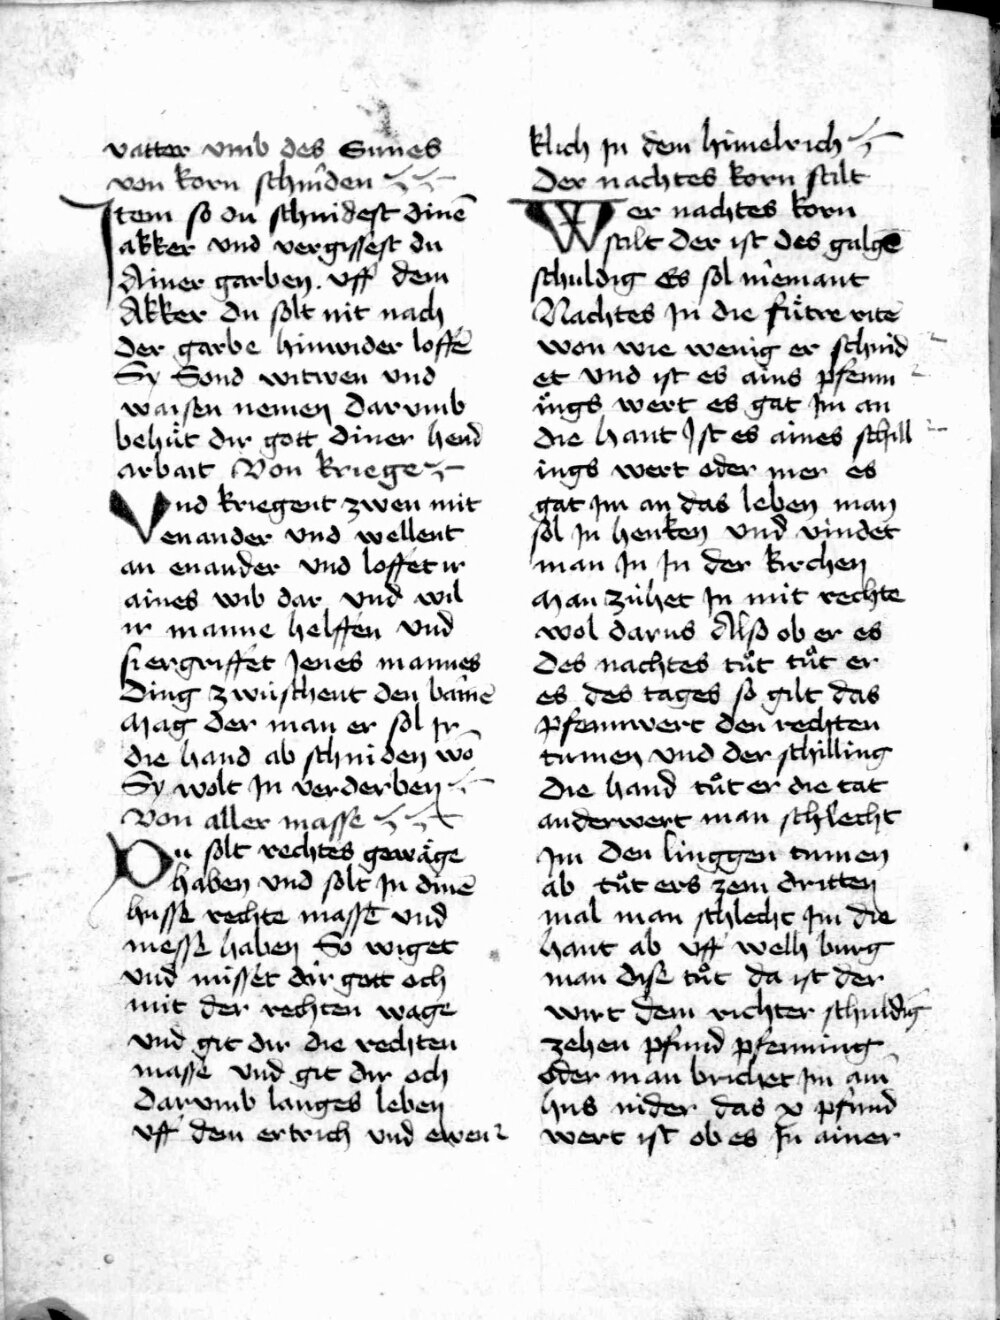 vatter vmb des Sunes
von korn schniden
Item so du schnidest dinē
akker vnd vergissest du
Ainer garben. vff dem
Akker du solt nit nach
der garbe hinwider loffē
Sy Sond witwen vnd
waisen nemen darvmb
behuͤt dir gott diner hend
arbait Von kriege
Vnd kriegent zwen mit
enander vnd wellent
an enander vnd loffet ir
aines wib dar vnd wil
ir manne helffen vnd
si ergriffet Jenes mannes
Ding zwüschent den bainē
Mag der man er sol Ir
die hand ab schniden wō
Sy wolt In verderben
Von aller masse
Du solt rechtes gewäge
haben vnd solt In dinē
husse rechte masse vnd
messe haben So wiget
vnd misset dir gott och
mit der rechten wage
vnd git dir die rechten
masse vnd git dir och
Darvmb langes leben
vff dem ertrich vnd ewen
klich In dem himelrich
Der nachtes korn stilt
Wer nachtes korn
stilt der ist des galgē
schuldig Es sol niemant
Nachtes In die fuͤtre ritē
won wie wenig er schnid
et vnd ist es ains pfenn
ings wert es gat Im an
die hant Ist es aines schill
ings wert oder mer es
gat Im an das leben man
sol In henken vnd vindet
man In In der kirchen
Man zühet In mit rechte
wol darus Also ob er es
des nachtes tuͦt tuͦt er
es des tages so gilt das
pfennwert den rechten
tumen vnd der schilling
die hand tuͦt er die tat
anderwert man schlecht
Im den linggen tumen
ab tuͦt ers zem dritten
mal man schlecht Im die
hant ab vff welh burg
man dise tuͦt da ist der
wirt dem richter schuldig
zehen pfund pfenning
oder man brichet Im ain
hus nider das x pfund
wert ist ob es In ainer